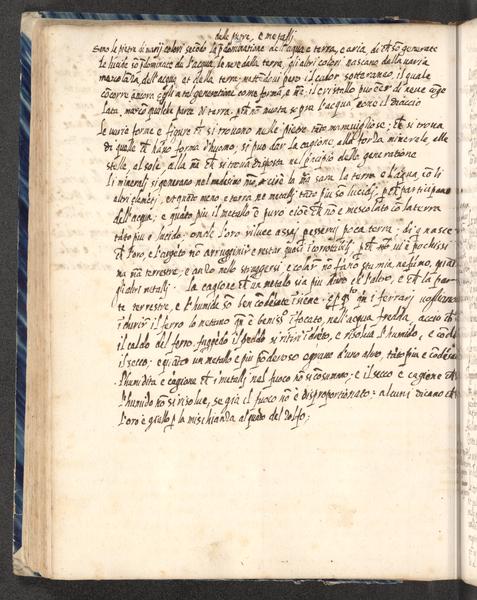 delle pietre, e metalli
Sono le pietre di varij colori secōdo la p̄dominatione dell'acqua e terra, e aria, di che sono generate
le lucide sono p̄dominate da l'acqua, le nere dalla terra, gli altri colori nascono dalla varia
mescolāza dell'acqua et della terra, mettendovi però il calor sotteraneo, il quale
cōcorre ancora egli a tal generatione come forma, e nō il cristallo può esser di neve conge
lata, ma cō qualche parte di terra, perche nō nuota sopra l'acqua, come il diaccio
le varie forme e figure che si trovono nelle pietre tāto maravigliose, che si trova
di quelle che hāno forma d'huomo, si può dar la cagione, alla forza minerale, alle
stelle, al sole, alla materia che si trova disposta nel principio della generatione
li minerali si generano nel medesimo modo, cioè la materia sarà la terra e l'acqua, cō li
altri elemēti, et quāto meno è terra ne metalli tāto più sō lucidi, perche participano
dell'acqua, e quāto più il metallo è puro cioè che nō è mescolato cō la terra
tāto più è lucido, onde l'oro riluce assai per esservi poca terra, di q̄ nasce
che l'oro e l'argēto nō arrugginir e restar quasi icorrotibili, perche nō vi è pochissi
ma materia terrestre, e anco nello struggersi, e colar nō fāno stumia nessuno, quāto
gli altri metalli. La cagione che un metallo sia più duro che l'altro, è che la par
te terrestre, e l'humide sō ben cōdēsate isieme, e per questo quādo i ferrarj vogliono
idurir il ferro lo mettono quādo è beniss.o ifocato, nell'acqua fredda, acciò che
il caldo del ferro, fuggēdo il freddo si ritiri idrēto, e risolva l'humido, e cōdēsi
il secco, e quāto un metallo è più pōderoso ognuno d'un altro, tāto più è cōdēsato
l'humidità è cagione che i metalli nel fuoco nō si cōsumono, e il secco è cagione che
l'humido nō si risolve, se già il fuoco nō è disproportionato, alcuni dicano che
l'oro è giallo per la mischianza al quāto del zolfo;